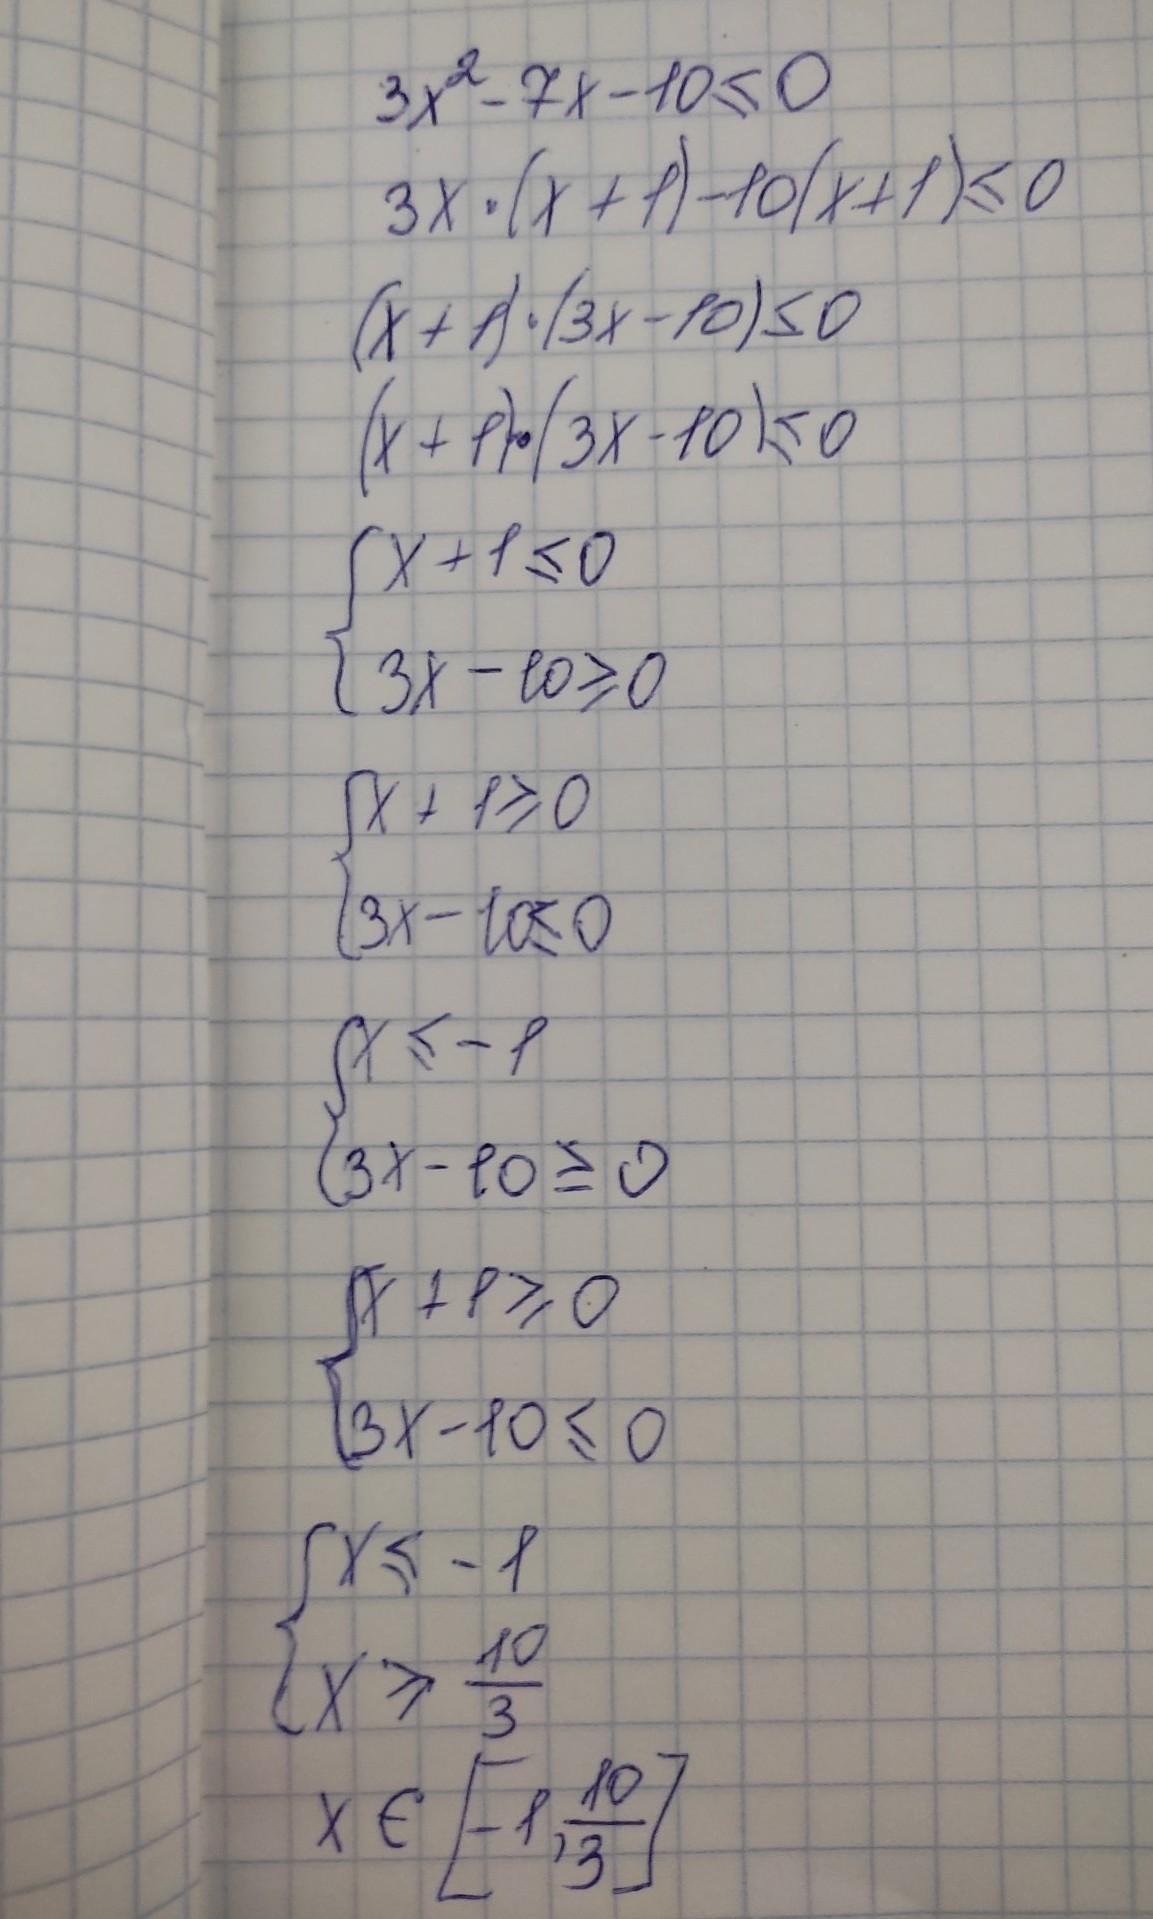 3x² - 7x - 10 ≤ 0
3x · (x + 1) - 10(x + 1) ≤ 0
(x + 1) · (3x - 10) ≤ 0
(x + 1) · (3x - 10) ≤ 0
{ x + 1 ≤ 0
3x - 10 ≥ 0
{ x + 1 ≥ 0
3x - 10 ≤ 0
{ x ≤ -1
3x - 10 ≥ 0
{ x + 1 ≥ 0
3x - 10 ≤ 0
{ x ≤ -1
x ≥ 10/3
x ∈ [-1, 10/3]